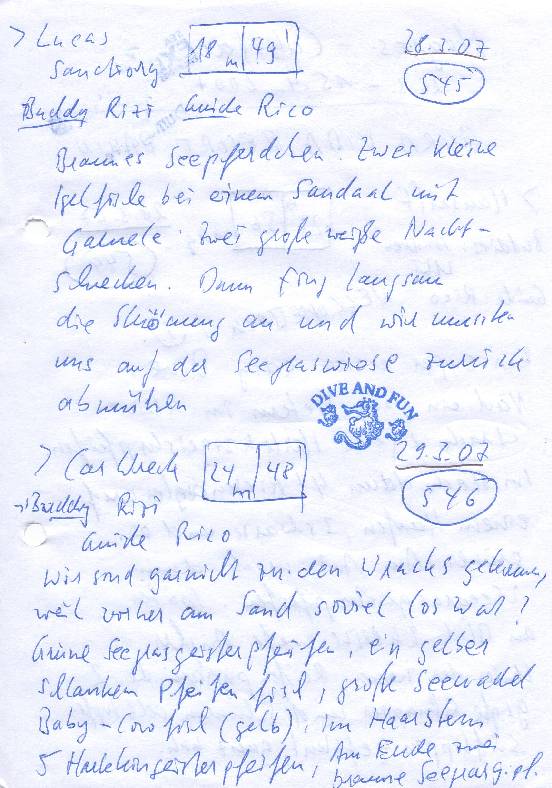 > Lucas 18 m 49' 28.3.07
Sanctuary 545
Buddy Rizi Guide Rico
Braunes Seepferdchen. Zwei kleine
Igelfische bei einem Sandaal mit
Garnele. Zwei große weiße Nacht-
schnecken. Dann fing langsam
die Strömung an und wir mussten
uns auf der Seegraswiese zurück
abmühen
DIVE AND FUN
> Car Wreck 24 m 48' 29.3.07
Buddy Rizi 546
Guide Rico
Wir sind garnicht zu den Wracks gekommen,
weil vorher am Sand soviel los war!
Grüne Seegrasgeisterpfeifen, ein gelber
schlanker Pfeifenfisch, große Seenadel
Baby-Cowfisch (gelb), im Haarstern
5 Harlekingeisterpfeifen, Am Ende zwei
braune Seegrasg.pf.